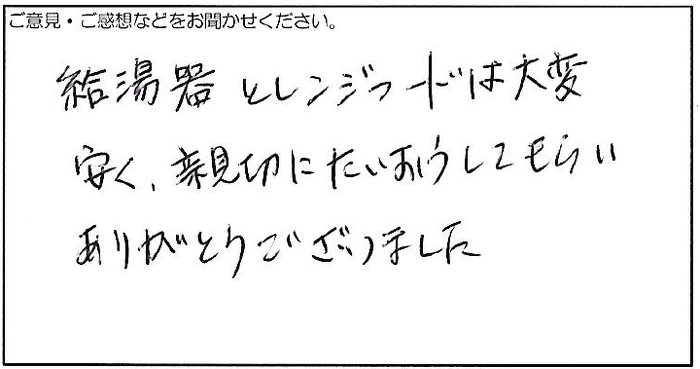 ご意見・ご感想などをお聞かせください。
給湯器とレンジフードは大変
安く、親切にたいおうしてもらい
ありがとうございました